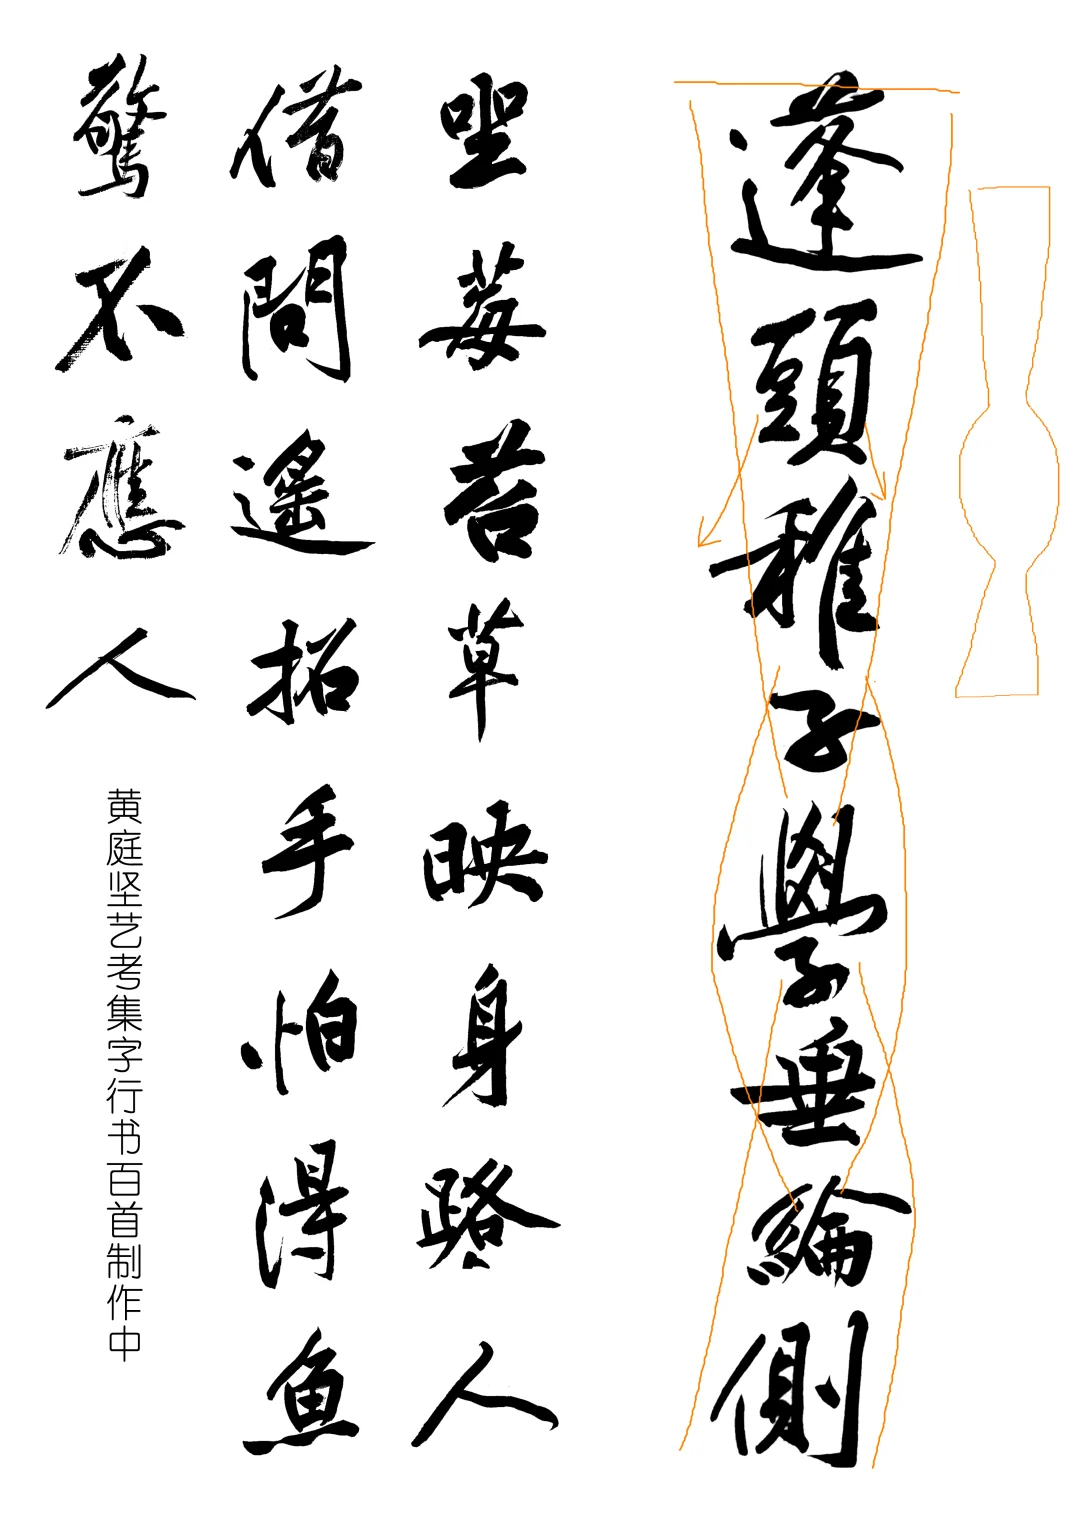 蓬頭稚子學垂綸側
坐莓苔草映身路人
借問遙招手怕得魚
驚不應人
黄庭坚艺考集字行书百首制作中